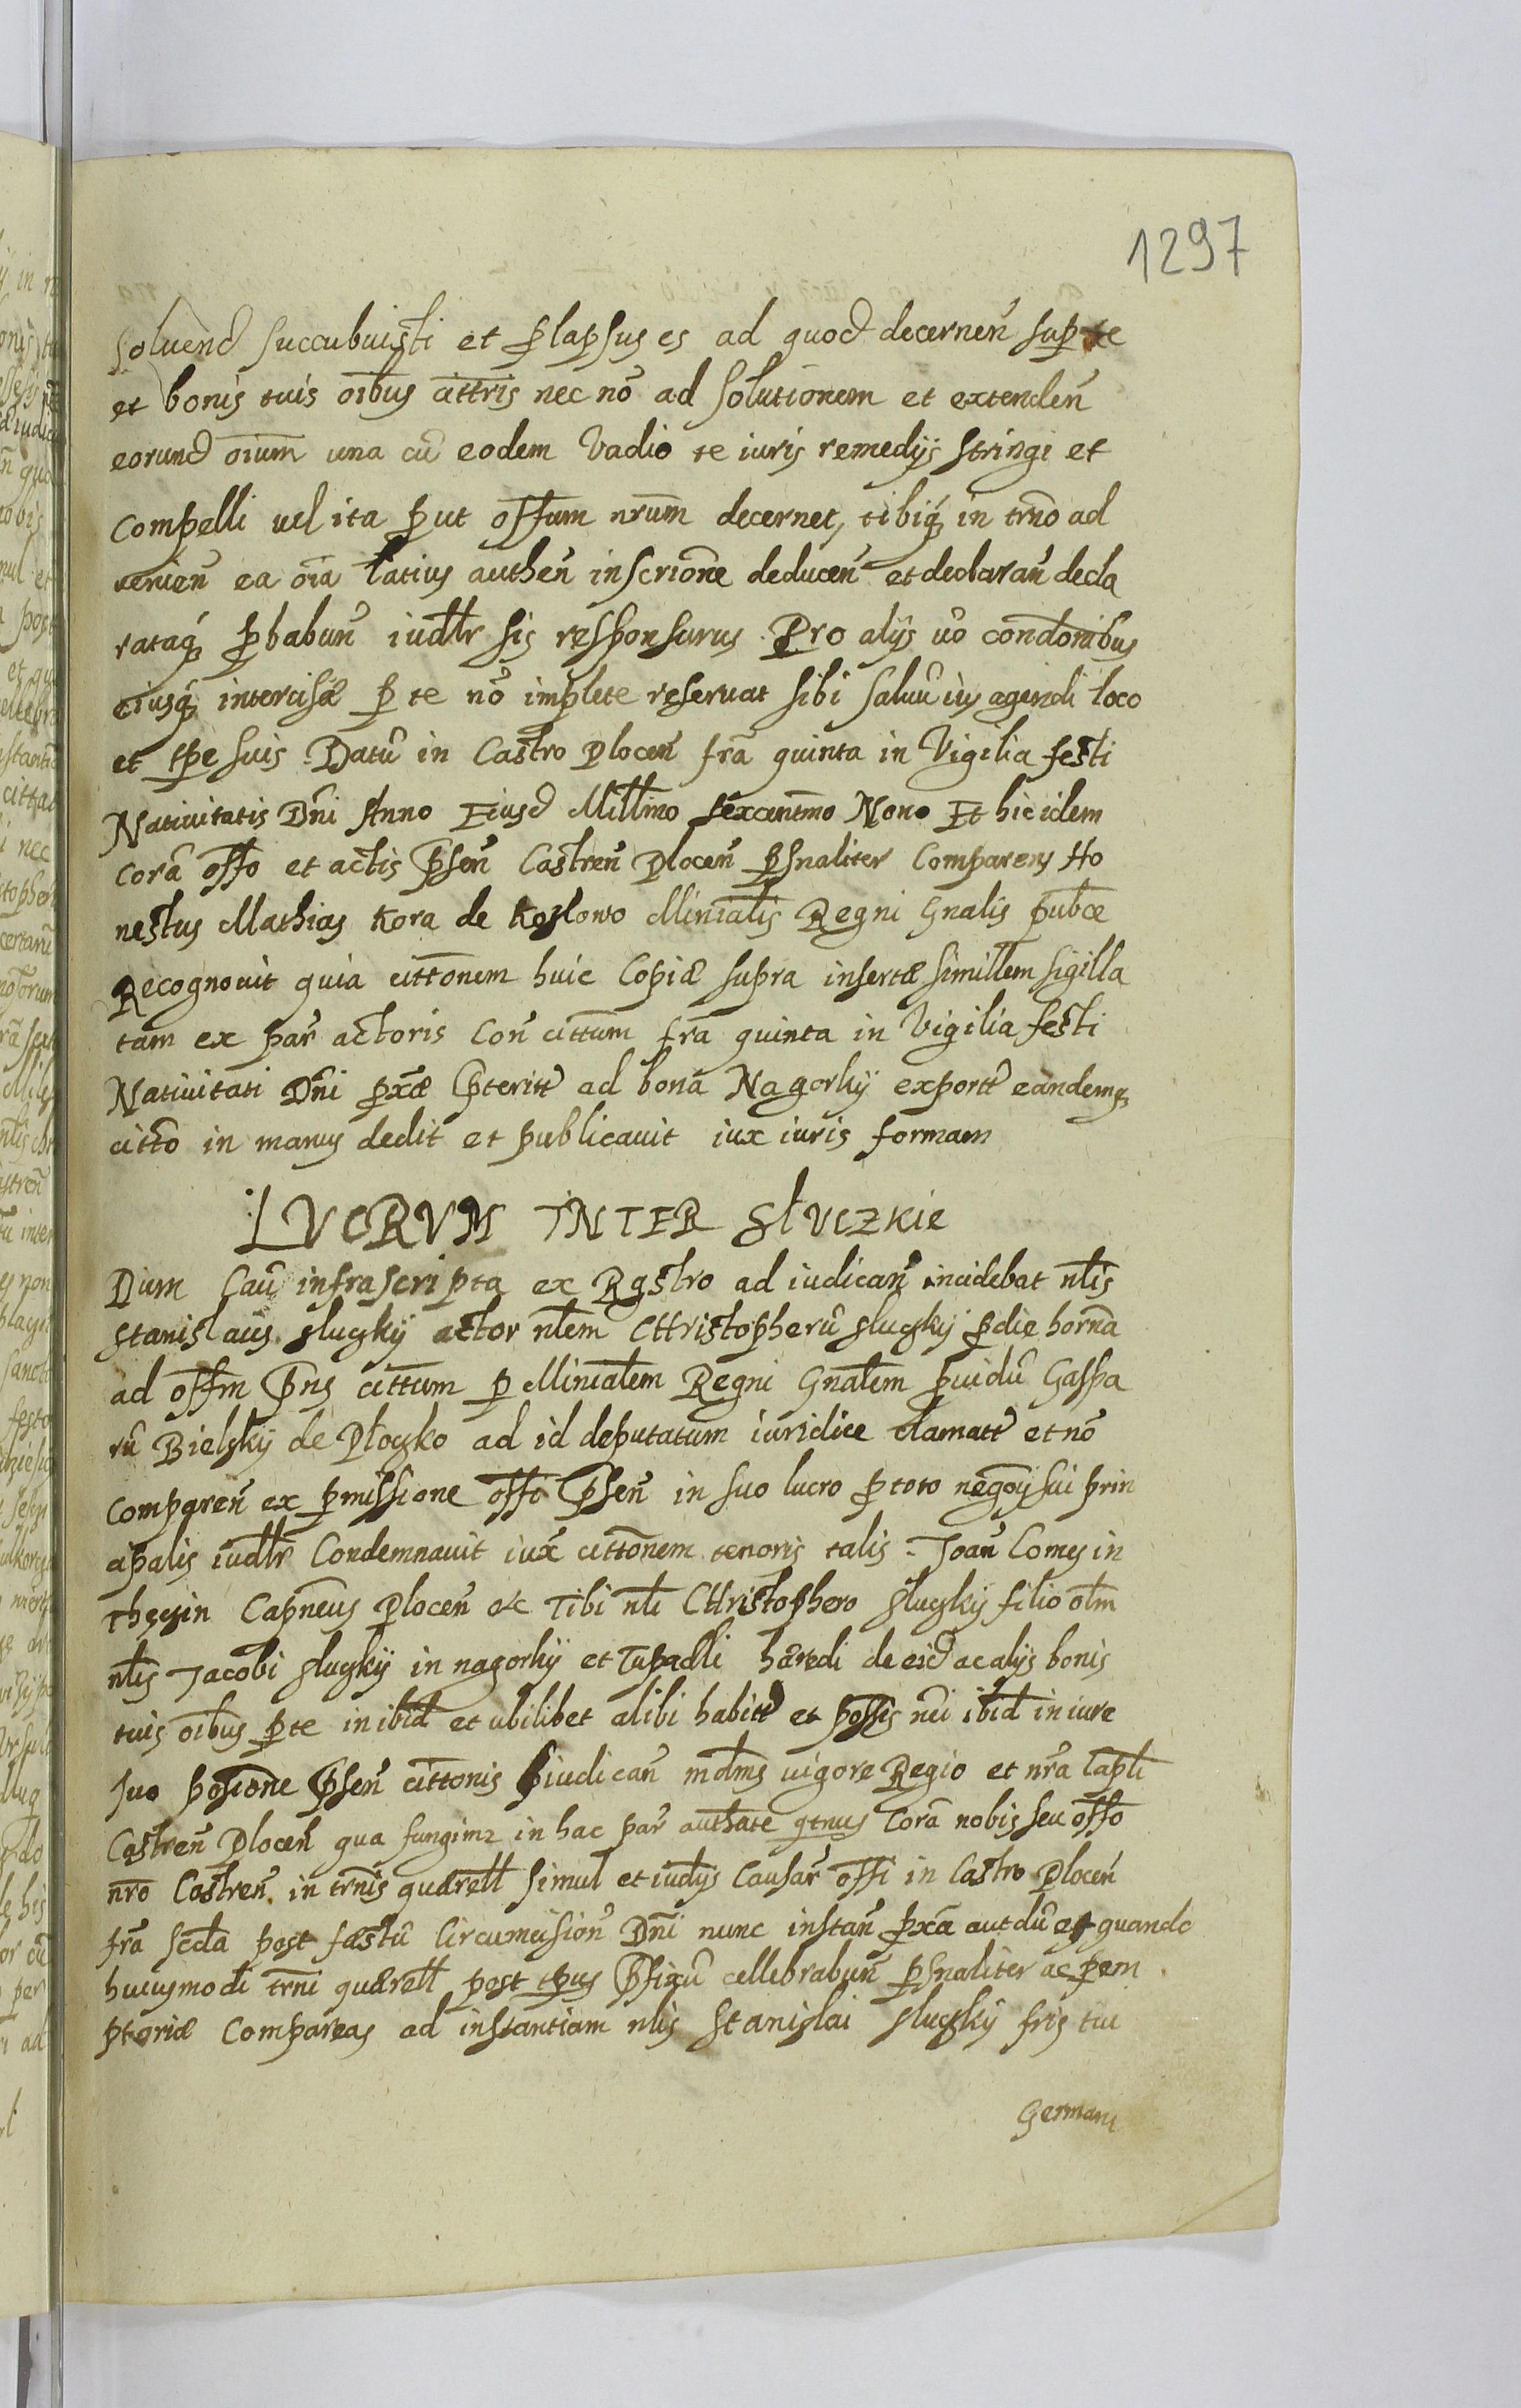 1297
soluend succubuisti et plapsus es ad quod decernen̄ sup te
et bonis tuis oībus cittīs nec nō ad solutionem et extenden̄
eorund oīum una cū eodem Vadio te iuris remedijs stringi et
compelli vel ita put offum nrūm decernet, tibiq̨ in trno ad
venien̄ ea oīa latius authen̄ inscrīone deducen̄ et declaran̄ decla
rataq̨ pbabun̄ iudlr sis responsurus. Pro alijs vo condonībus
eiusq̨ intercisæ p te nō implete reservat sibi salvū ius agendi loco
et tpe suis Datū in Castro Plocen̄ frā quinta in Vigilia festi
Nativitatis Dnī Anno Eiusd Millmo sexcentmo Nono Et hic idem
corā offo et actis Psen̄ Castren̄ Plocen̄ Psnaliter Comparens Ho
nestus Mathias Kora de Kozlowo Minialis Regni Gnalis pubce
Recognovit quia cittonem huic Copiæ supra insertæ simillem sigilla
tam ex par̄ actoris Con̄ cittum frā quinta in Vigilia festi
Nativitati Dnī pxæ Pteritt ad bona Nagorky exportt eandemq̨
citto in manus dedit et publicavit iux iuris formam
LVCRVM INTER SłVCZKIE
Dum Cau infrascripta ex Rgstro ad iudican̄ incidebat nlis
Stanislaus Sluczky actor nlem CHristopherū Sluczky pdie hornā
ad offm Pns cittum p Minialem Regni Gnalem pvidū Gaspa
rū Bielsky de Płoczko ad id deputatum iuridice clamatt et nō
comparen̄ ex pmissione offi Psen̄ in suo lucro p toto negoij sui prin
cipalis iudlr Condemnavit iux cittonem tenoris talis. Joan̄ Comes in
Theczin Capneus Plocen̄ &c Tibi nli CHristophero Sluczky filio olm
nlis Jacobi Sluczky in nagorky et Tupadli hæredi de eisd ac alijs bonis
tuis oībus p te inibid et ubilibet alibi habitt et possis nci ibid in iure
suo posione Psen̄ cittonis piudican̄ mdms vigore Regio et nrā Capli
Castren̄ Plocen̄ qua fungimr in hac par̄ authate qtnus Corā nobis seu offo
nro Castren̄ in trnis quærell simul et iudijs Causar̄ offi in Castro Plocen̄
frā scda post fæstū Circumcision̄ Dnī nunc instan̄ pxā aut dū et quando
huiusmodi trni quærell post tpus Psixū cellebrabun̄ Psnaliter ac pem
ptoriæ Compareas ad instantiam nlis Stanislai Sluczky fris tui
Germani